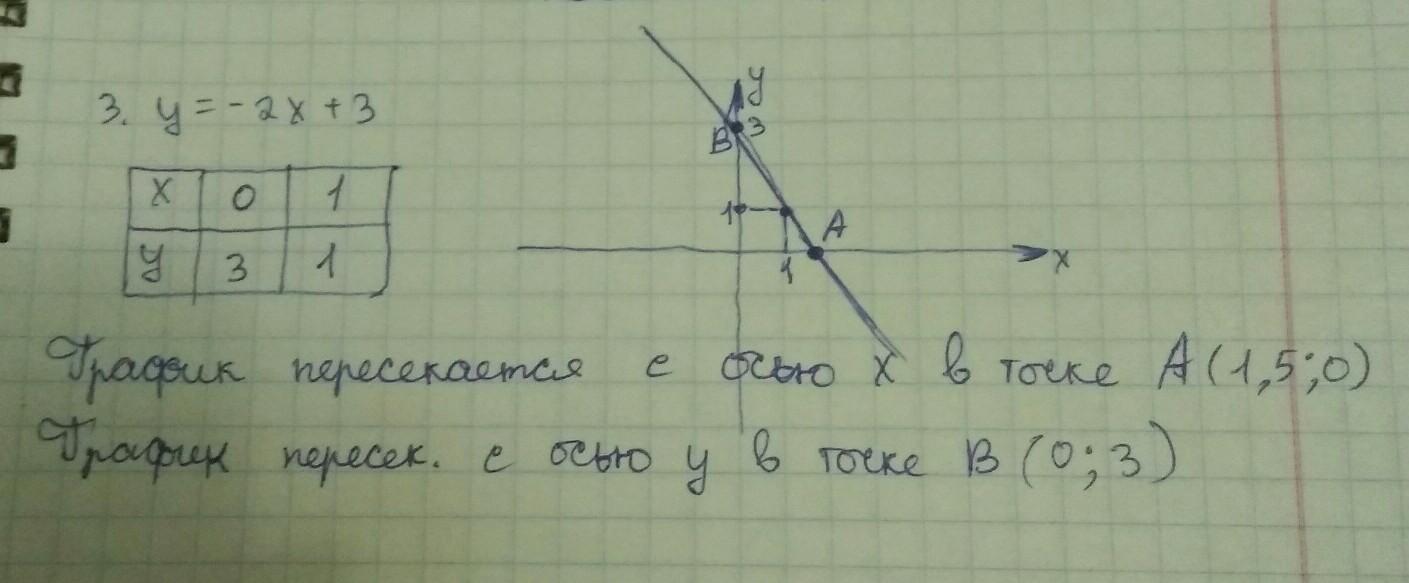 3. y = -2x + 3
x 0 1
y 3 1
y
B 3
1
A
1
x
График пересекается с осью x в точке A(1,5;0)
График пересек. с осью y в точке B (0;3)